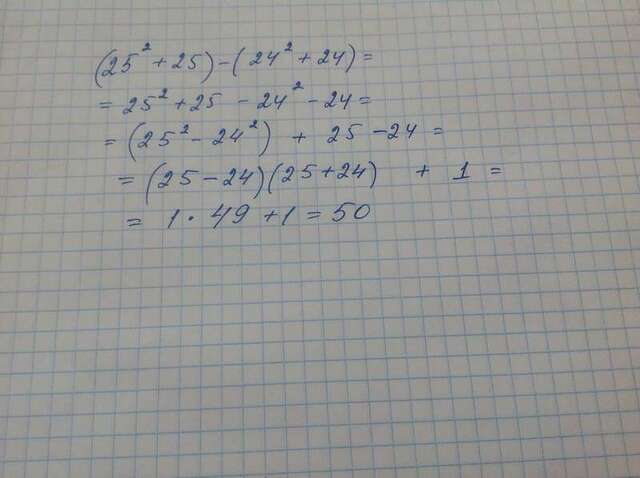 (25² + 25) - (24² + 24) =
= 25² + 25 - 24² - 24 =
= (25² - 24²) + 25 - 24 =
= (25 - 24)(25 + 24) + 1 =
= 1 · 49 + 1 = 50